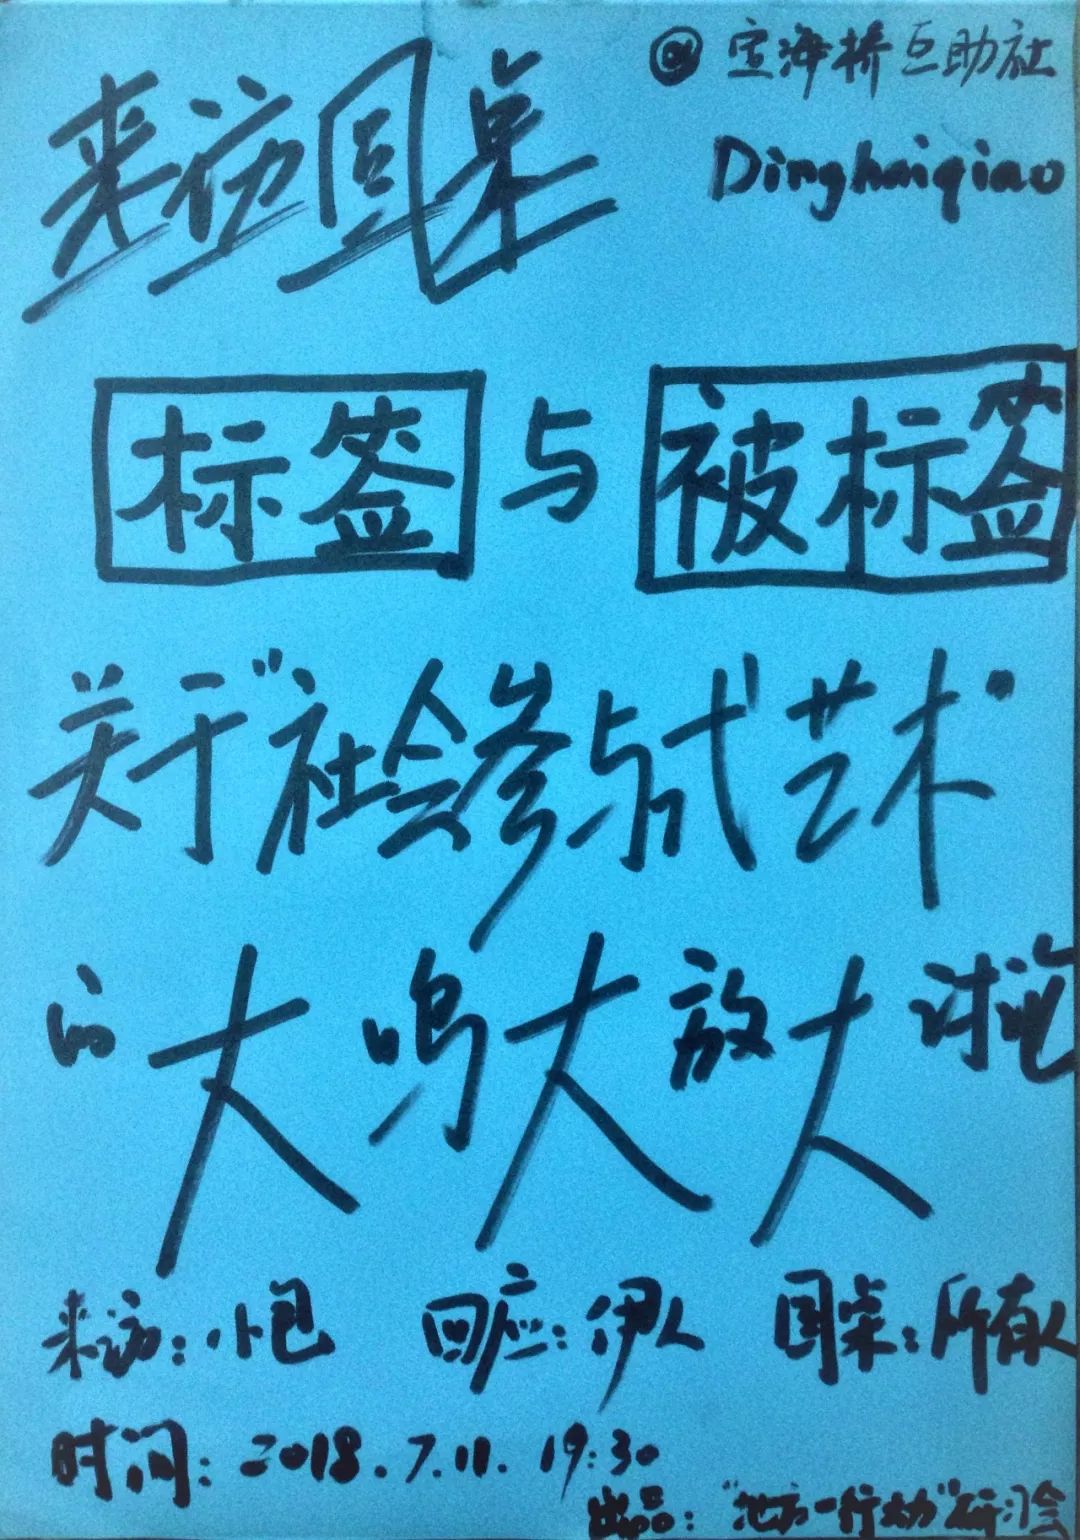 @ 定海桥互助社
Dinghaiqiao
来访圆桌
标签 与 被标签
关于"社会参与式艺术"
的大鸣大放大讨论
来访：小包 回应：伊人 圆桌：所有人
时间：2018.7.11. 19:30
出品："地方—行动"研习会